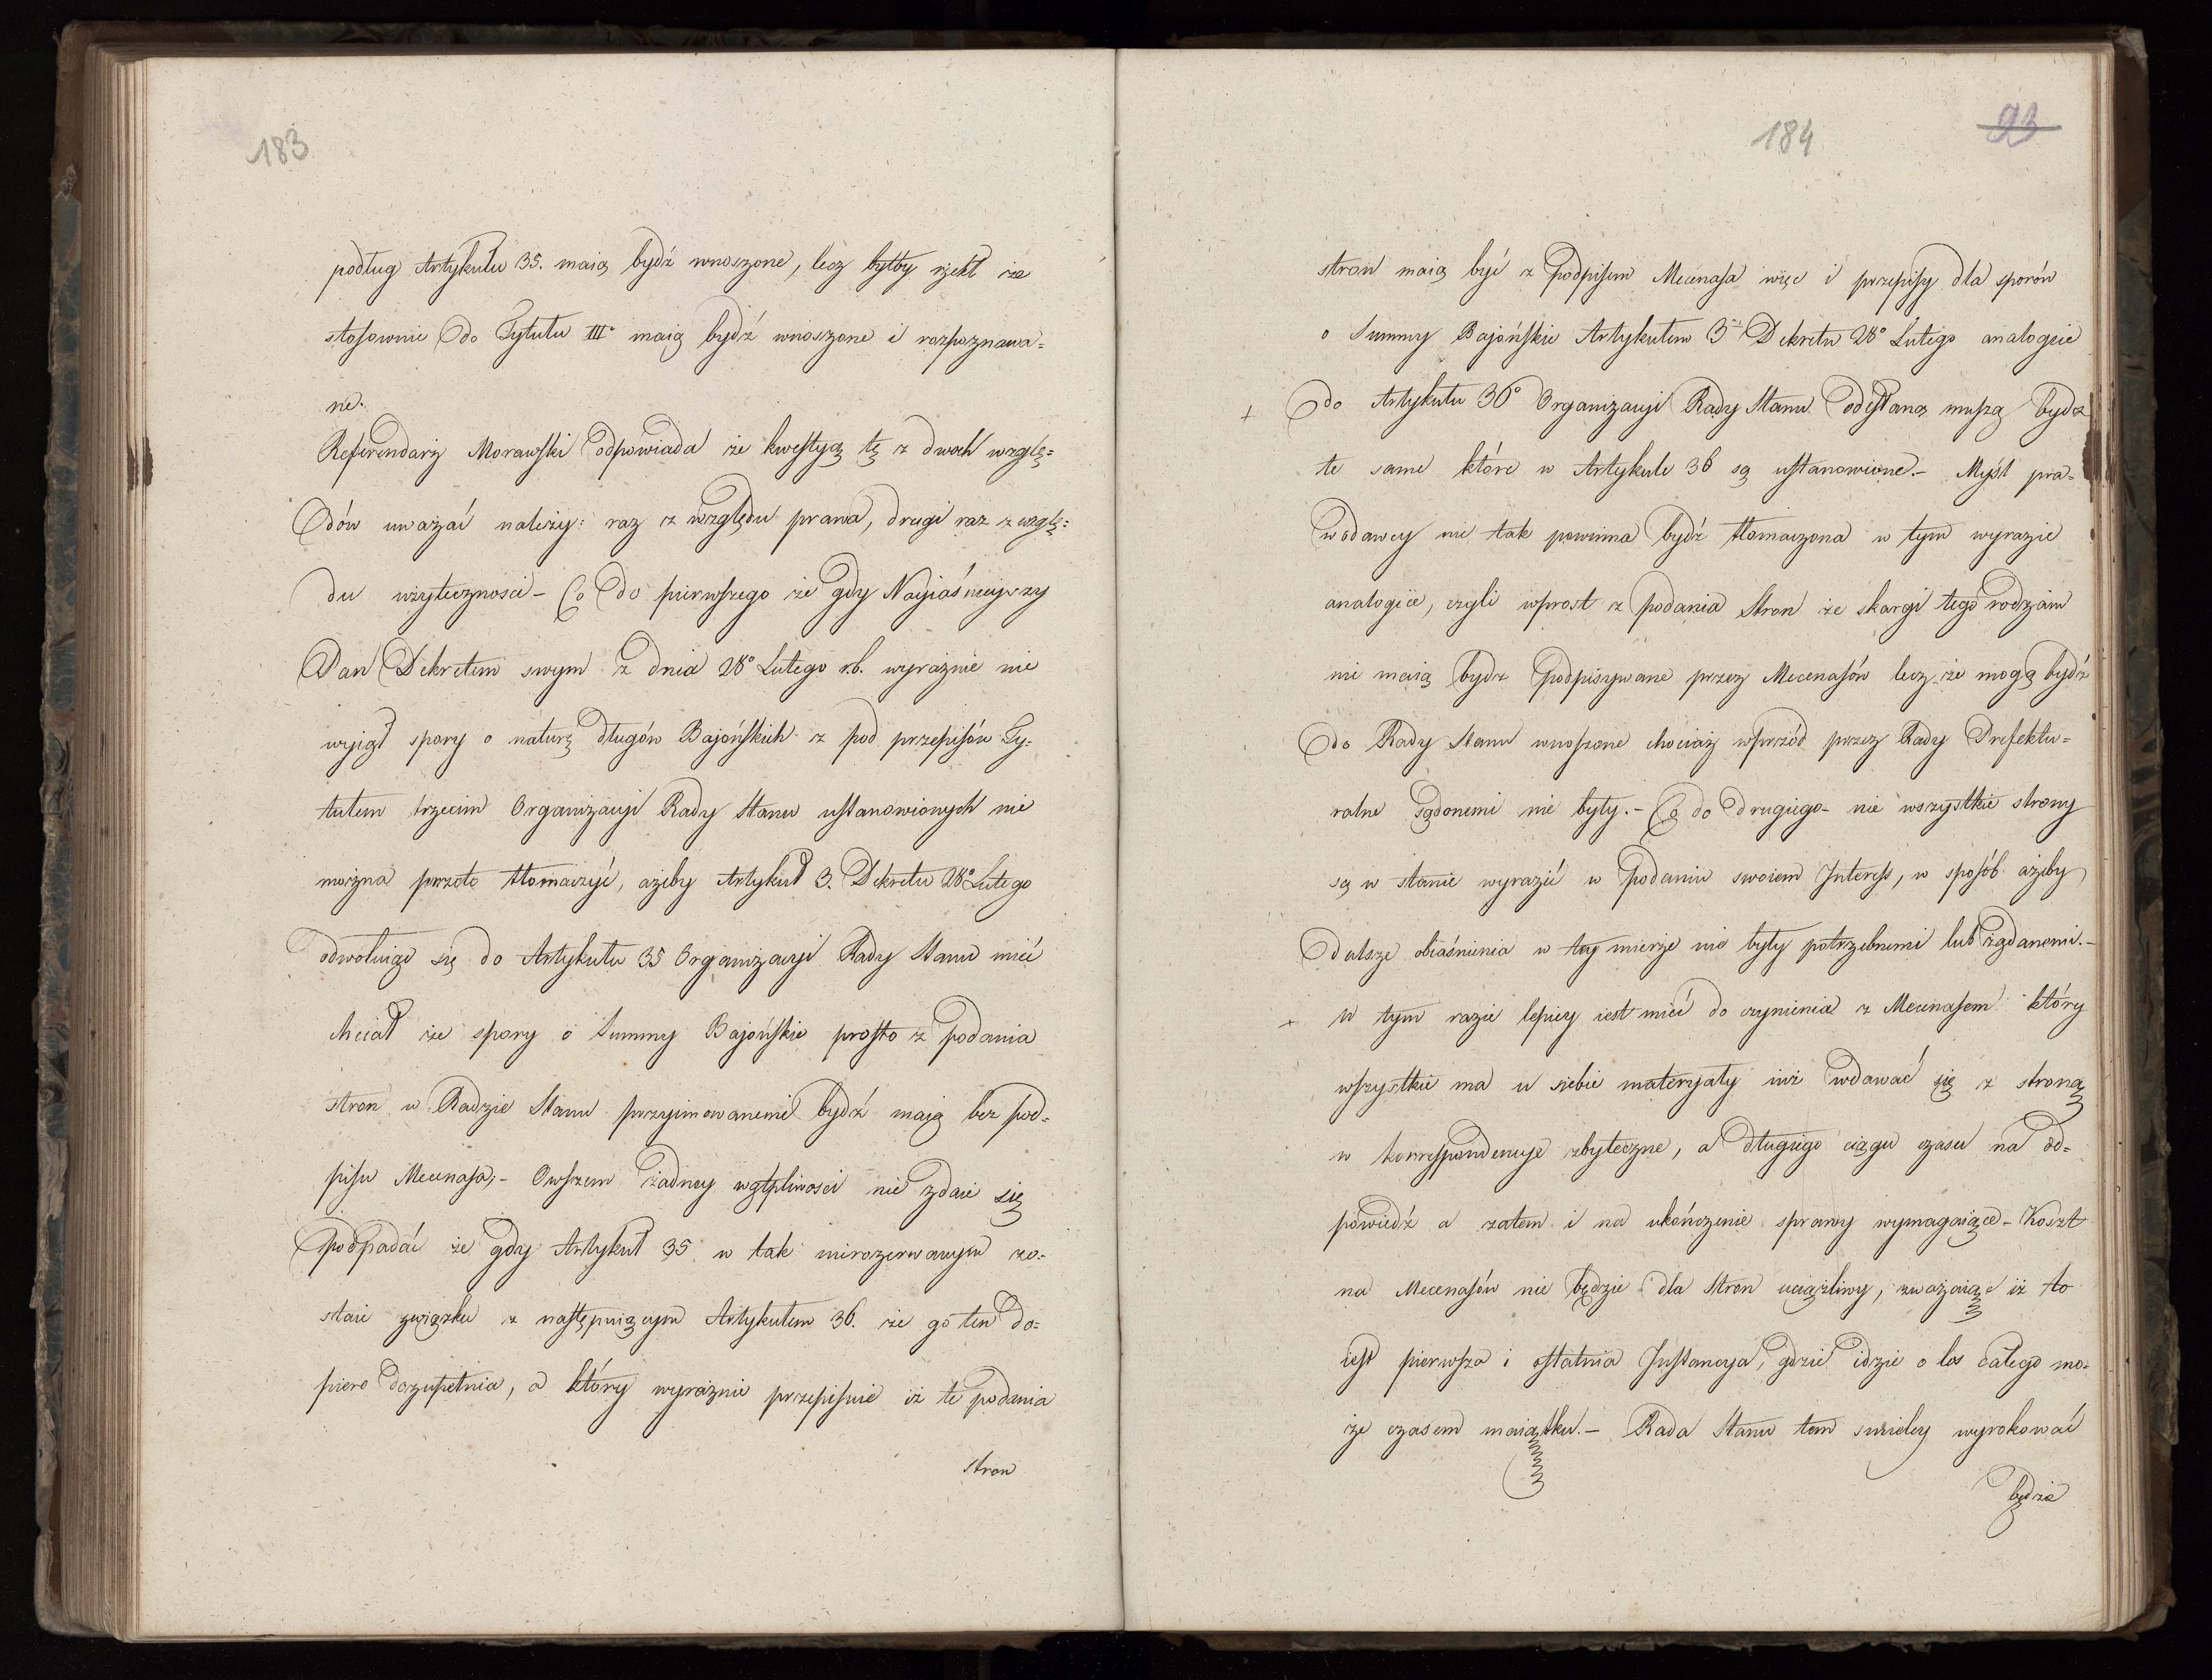 183
podług Artykułu 35. maią bydź wnoszone, lecz byłby rzekł że
stosownie do Tytułu III° maią bydź wnoszone i rozpoznawa=
ne.
Referendarz Morawski odpowiada że kwestyą tę z dwoch wzglę=
dów uważać należy: raz z względu prawa, drugi raz z wzglę=
du użyteczności – Co do pierwszego że gdy Nayiaśnieyszy
Pan Dekretem swym z dnia 28° Lutego r.b. wyraźnie nie
wyiął spory o naturę długów Bajońskich z pod przepisów Ty=
tułem trzecim Organizacyi Rady Stanu ustanowionych nie
można przeto tłomaczyć, ażeby Artykuł 3. Dekretu 28° Lutego
odwołuiąc się do Artykułu 35 Organizacyi Rady Stanu mieć
chciał że spory o Summy Bajońskie prosto z podania
stron w Radzie Stanu przyimowanemi bydź maią bez pod=
pisu Mecenasa, – Owszem żadney wątpliwości nie zdaie się
podpadać że gdy Artykuł 35 w tak nierozerwanym zo=
staie związku z następuiącym Artykułem 36. że go ten do=
piero dozupełnia, a który wyraźnie przepisuie iż te podania
stron
184
93
stron maią być z podpisem Mecenasa więc i przepisy dla sporów
o Summy Bajońskie Artykułem 3 Dekretu 28° Lutego analogcie
+ do Artykułu 36° Organizacyi Rady Stanu odesłaną muszą bydz
te same które w Artykule 36 są ustanowione. – Myśl pra=
wodawcy nie tak powinna bydź tłomaczona w tym wyrazie
analogcie, czyli wprost z podania Stron że skargi tego rodzaiu
nie maią bydz podpisywane przez Mecenasów lecz że mogą bydź
do Rady Stanu wnoszone chociaż wprzód przez Rady Prefektu=
ralne sądonemi nie były. – Co do drugiego – nie wszystkie strony
są w stanie wyrazić w podaniu swoiem Interess, w sposób ażeby
dalsze obiaśnienia w tey mierze nie były potrzebnemi lub żądanemi. –
+ W tym razie lepiey iest mieć do czynienia z Mecenasem który
wszystkie ma u siebie materyały niż wdawać się z stroną
w korrespondencye zbyteczne, a długiego ciągu czasu na od=
powiedź a zatem i na ukończenie sprawy wymagaiące – Koszt
na Mecenasów nie będzie dla Stron uciążliwy, zważaiąc iż to
iest pierwsza i ostatnia Instancya, gdzie idzie o los całego mo=
że czasem maiątku. – Rada Stanu tem śmieley wyrokować
będzie